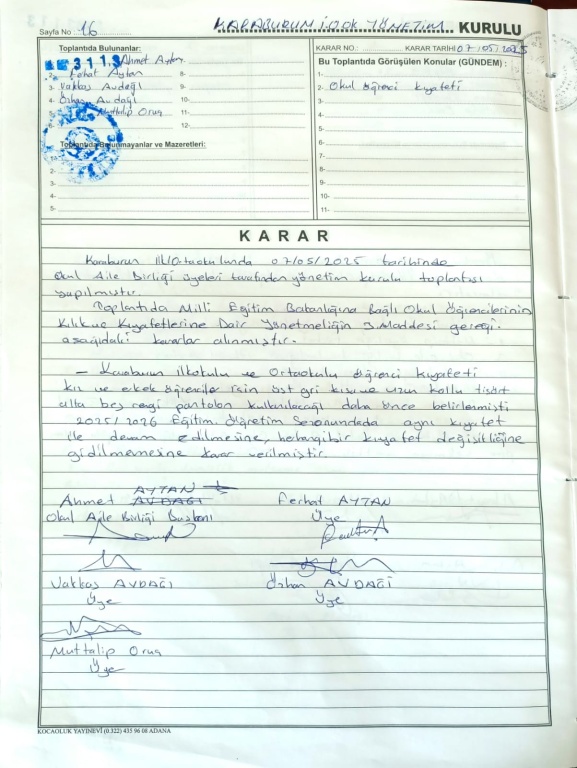 Sayfa No : 16
KARABURUN İ.O.OK YÖNETİM KURULU
Toplantıda Bulunanlar:
3 1 1 3 Ahmet Aytan
2- Ferhat Aytan
3- Vakkas Avdağı
4- Özhan Avdağı
Muttalip Oruç
8-
9-
10-
11-
12-
Toplantıda Bulunmayanlar ve Mazeretleri:
2-
3-
4-
5-
KARAR NO.: KARAR TARİHİ: 07/05/2025
Bu Toplantıda Görüşülen Konular (GÜNDEM) :
1-
2- Okul öğrenci kıyafeti
3-
4-
5-
6-
7-
8-
9-
10-
11-
KARAR
Karaburun İlk/Ortaokulunda 07/05/2025 tarihinde
Okul Aile Birliği üyeleri tarafından yönetim kurulu toplantısı
yapılmıştır.
Toplantıda Milli Eğitim Bakanlığına Bağlı Okul Öğrencilerinin
Kılık ve Kıyafetlerine Dair Yönetmeliğin 3 Maddesi gereği.
aşağıdaki kararlar alınmıştır.
– Karaburun ilkokulu ve Ortaokulu öğrenci kıyafeti
kız ve erkek öğrenciler için üst gri kısa ve uzun kollu tişört
altta bej rengi pantolon kullanılacağı daha önce belirlenmişti
2025/2026 Eğitim Öğretim Sezonundada aynı kıyafet
ile devam edilmesine, herhangibir kıyafet değişikliğine
gidilmemesine karar verilmiştir.
AYTAN
Ahmet AVDAĞI
Ferhat AYTAN
Okul Aile Birliği Başkanı
Üye
Vakkas AVDAĞI
Özhan AVDAĞI
Üye
Üye
Muttalip Oruç
Üye
KOCAOLUK YAYINEVİ (0.322) 435 96 08 ADANA